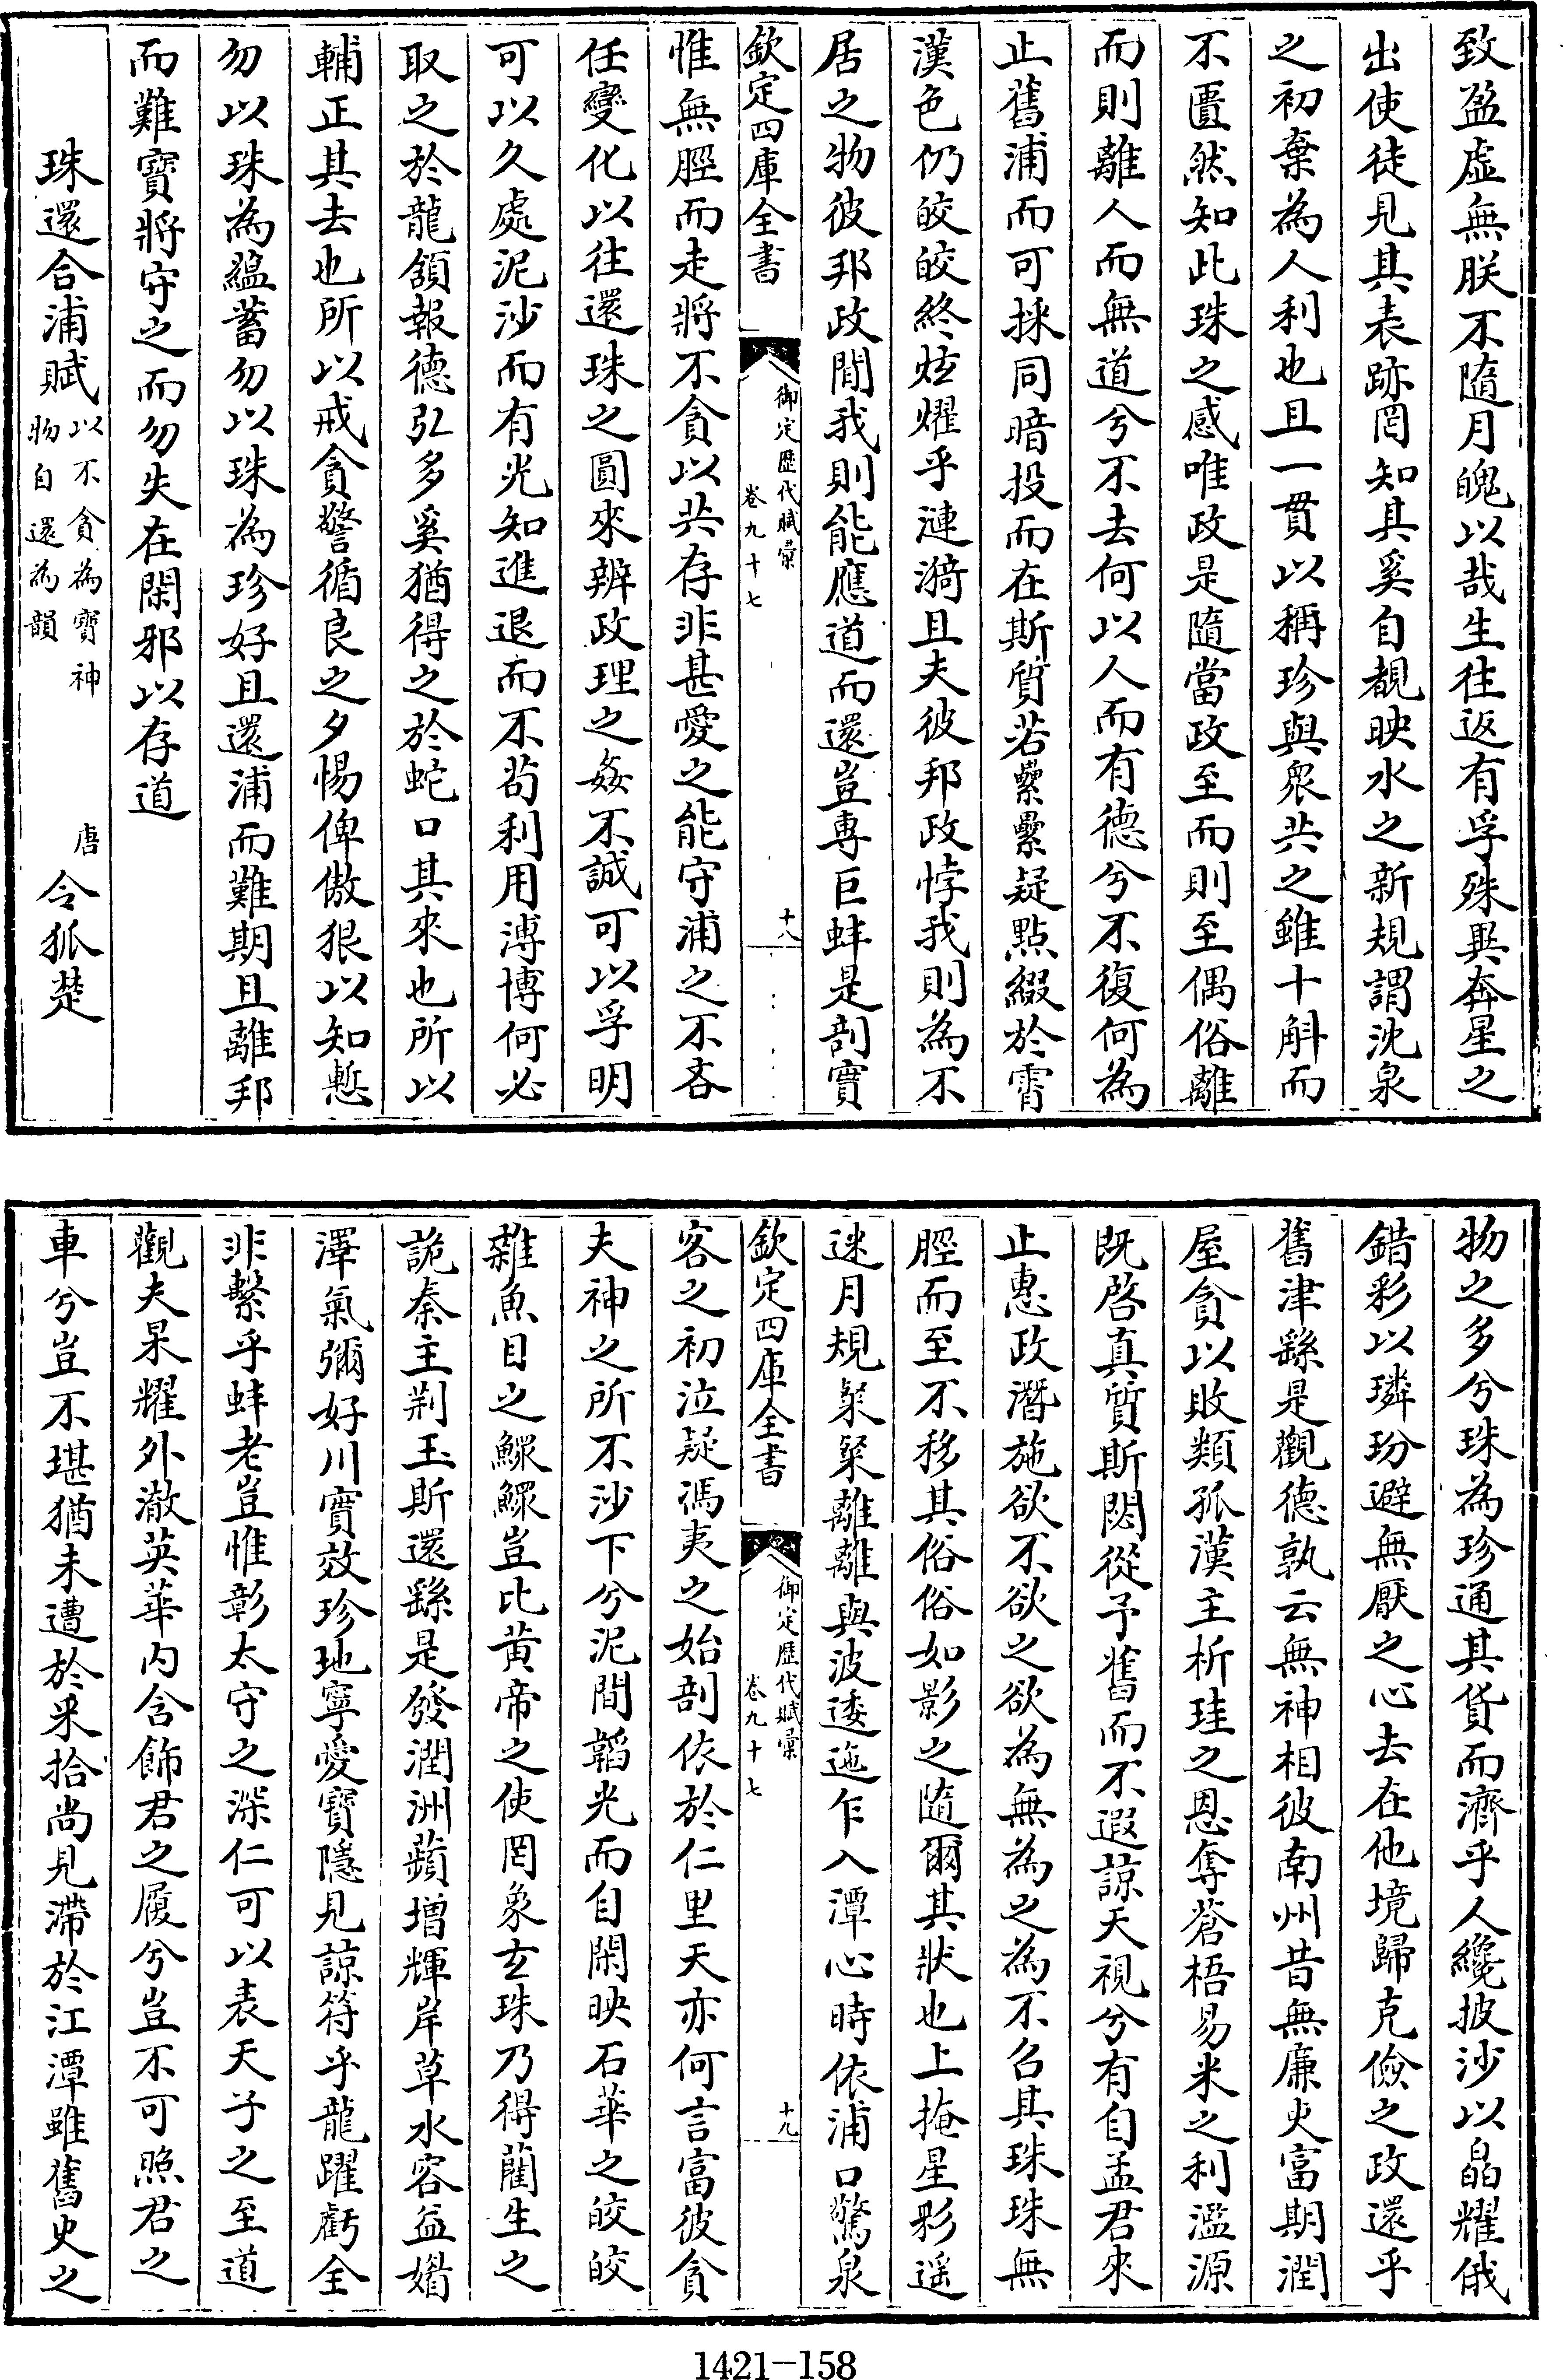 致盈虛無朕不隨月魄以哉生往返有孚殊異奔星之
出使徒見其表跡罔知其奚自覩映水之新規謂沈泉
之初棄為人利也且一貫以稱珍與衆共之雖十斛而
不匱然知此珠之感唯政是隨當政至而則至偶俗離
而則離人而無道兮不去何以人而有德兮不復何為
止舊浦而可採同暗投而在斯質若纍纍疑點綴於霄
漢色仍皎皎終炫燿乎漣漪且夫彼邦政悖我則為不
居之物彼邦政閒我則能應道而還豈專巨蚌是剖寶
欽定四庫全書
御定歷代賦彙
卷九十七
十八
惟無脛而走將不貪以共存非甚愛之能守浦之不吝
任變化以往還珠之圓來辨政理之姦不誠可以孚明
可以久處泥沙而有光知進退而不苟利用溥博何必
取之於龍頷報德弘多奚猶得之於蛇口其來也所以
輔正其去也所以戒貪警循良之夕惕俾傲狠以知慙
勿以珠為蘊蓄勿以珠為珍好且還浦而難期且離邦
而難寶將守之而勿失在閑邪以存道
珠還合浦賦 以不貪為寶神
物自還為韻
唐 令狐楚
物之多兮珠為珍通其貨而濟乎人纔披沙以皛耀俄
錯彩以璘玢避無厭之心去在他境歸克儉之政還乎
舊津繇是觀德孰云無神相彼南州昔無廉吏富期潤
屋貪以敗類孤漢主析珪之恩奪蒼梧易米之利濫源
既啓真質斯閟從予舊而不遐諒天視兮有自孟君來
止惠政潛施欲不欲之欲為無為之為不召其珠珠無
脛而至不移其俗俗如影之隨爾其狀也上掩星彩遥
迷月規粲粲離離與波逶迤乍入潭心時依浦口驚泉
欽定四庫全書
御定歷代賦彙
卷九十七
十九
客之初泣疑馮夷之始剖依於仁里天亦何言富彼貪
夫神之所不沙下兮泥間韜光而自閑映石華之皎皎
雜魚目之鰥鰥豈比黄帝之使罔象玄珠乃得藺生之
詭秦主荆玉斯還繇是發潤洲蘋增輝岸草水容益㜻
澤氣彌好川實效珍地寧愛寶隱見諒符乎龍躍虧全
非繫乎蚌老豈惟彰太守之深仁可以表天子之至道
觀夫杲耀外澈英華内含飾君之履兮豈不可照君之
車兮豈不堪猶未遭於采拾尚見滯於江潭雖舊史之
1421-158